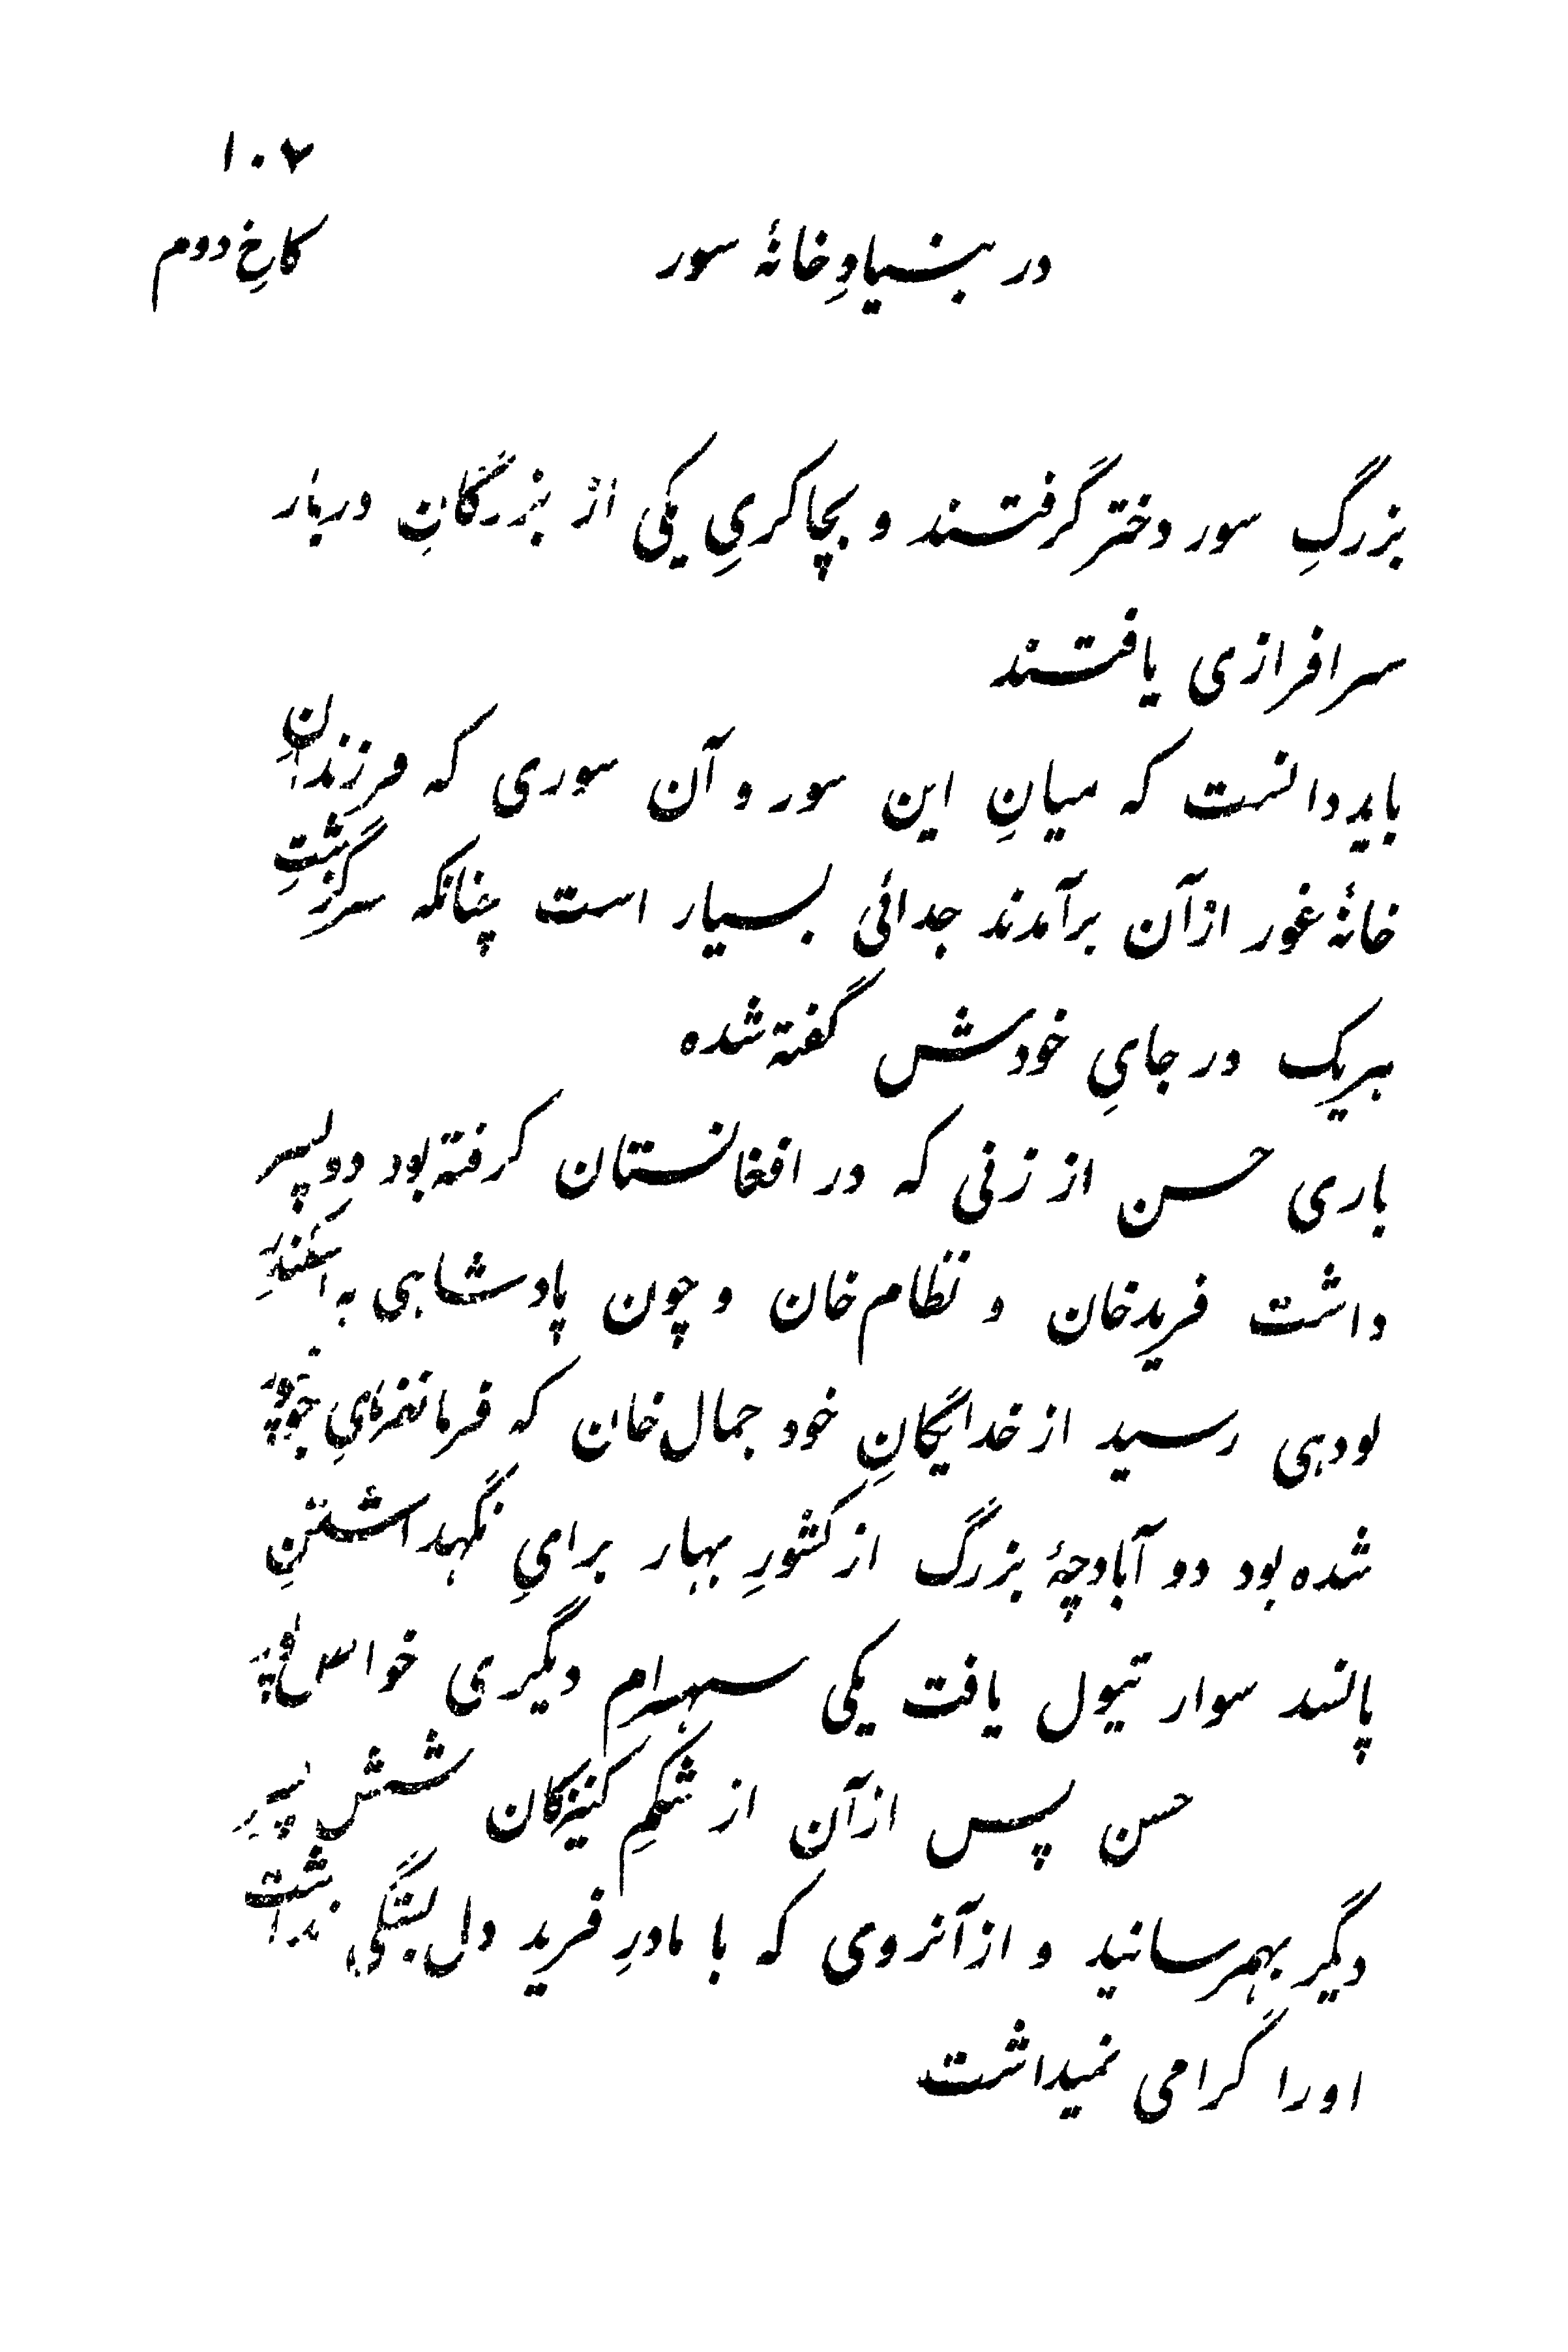 ۱۰۷
کاخِ دوم
در بنیادِ خانهٔ سور
بزرگِ سور دختر گرفتند و بچاکریِ یکی از بزرگانِ دربار
سرافرازی یافتند
باید دانست که میانِ این سور و آن سوری که فرزندانِ
خانهٔ غور از آن برآمدند جدائی بسیار است چنانکه سرگزشتِ
هریک در جایِ خودش گفته شده
باری حسن از زنی که در افغانستان گرفته بود دو پسر
داشت فرید خان و نظام خان و چون پادشاهی به اسکندرِ
لودهی رسید از خدایگانِ خود جمال خان که فرمانفرمایِ جونپور
شده بود دو آبادچهٔ بزرگ از کشورِ بهار برایِ نگهداشتنِ
پانسد سوار تیول یافت یکی سهسرام دیگری خواس پور
حسن پس از آن از شکمِ کنیزکان شش پسرِ
دیگر بهمرسانید و از آنروی که با مادرِ فرید دل بستگی نداشت
اورا گرامی نمیداشت